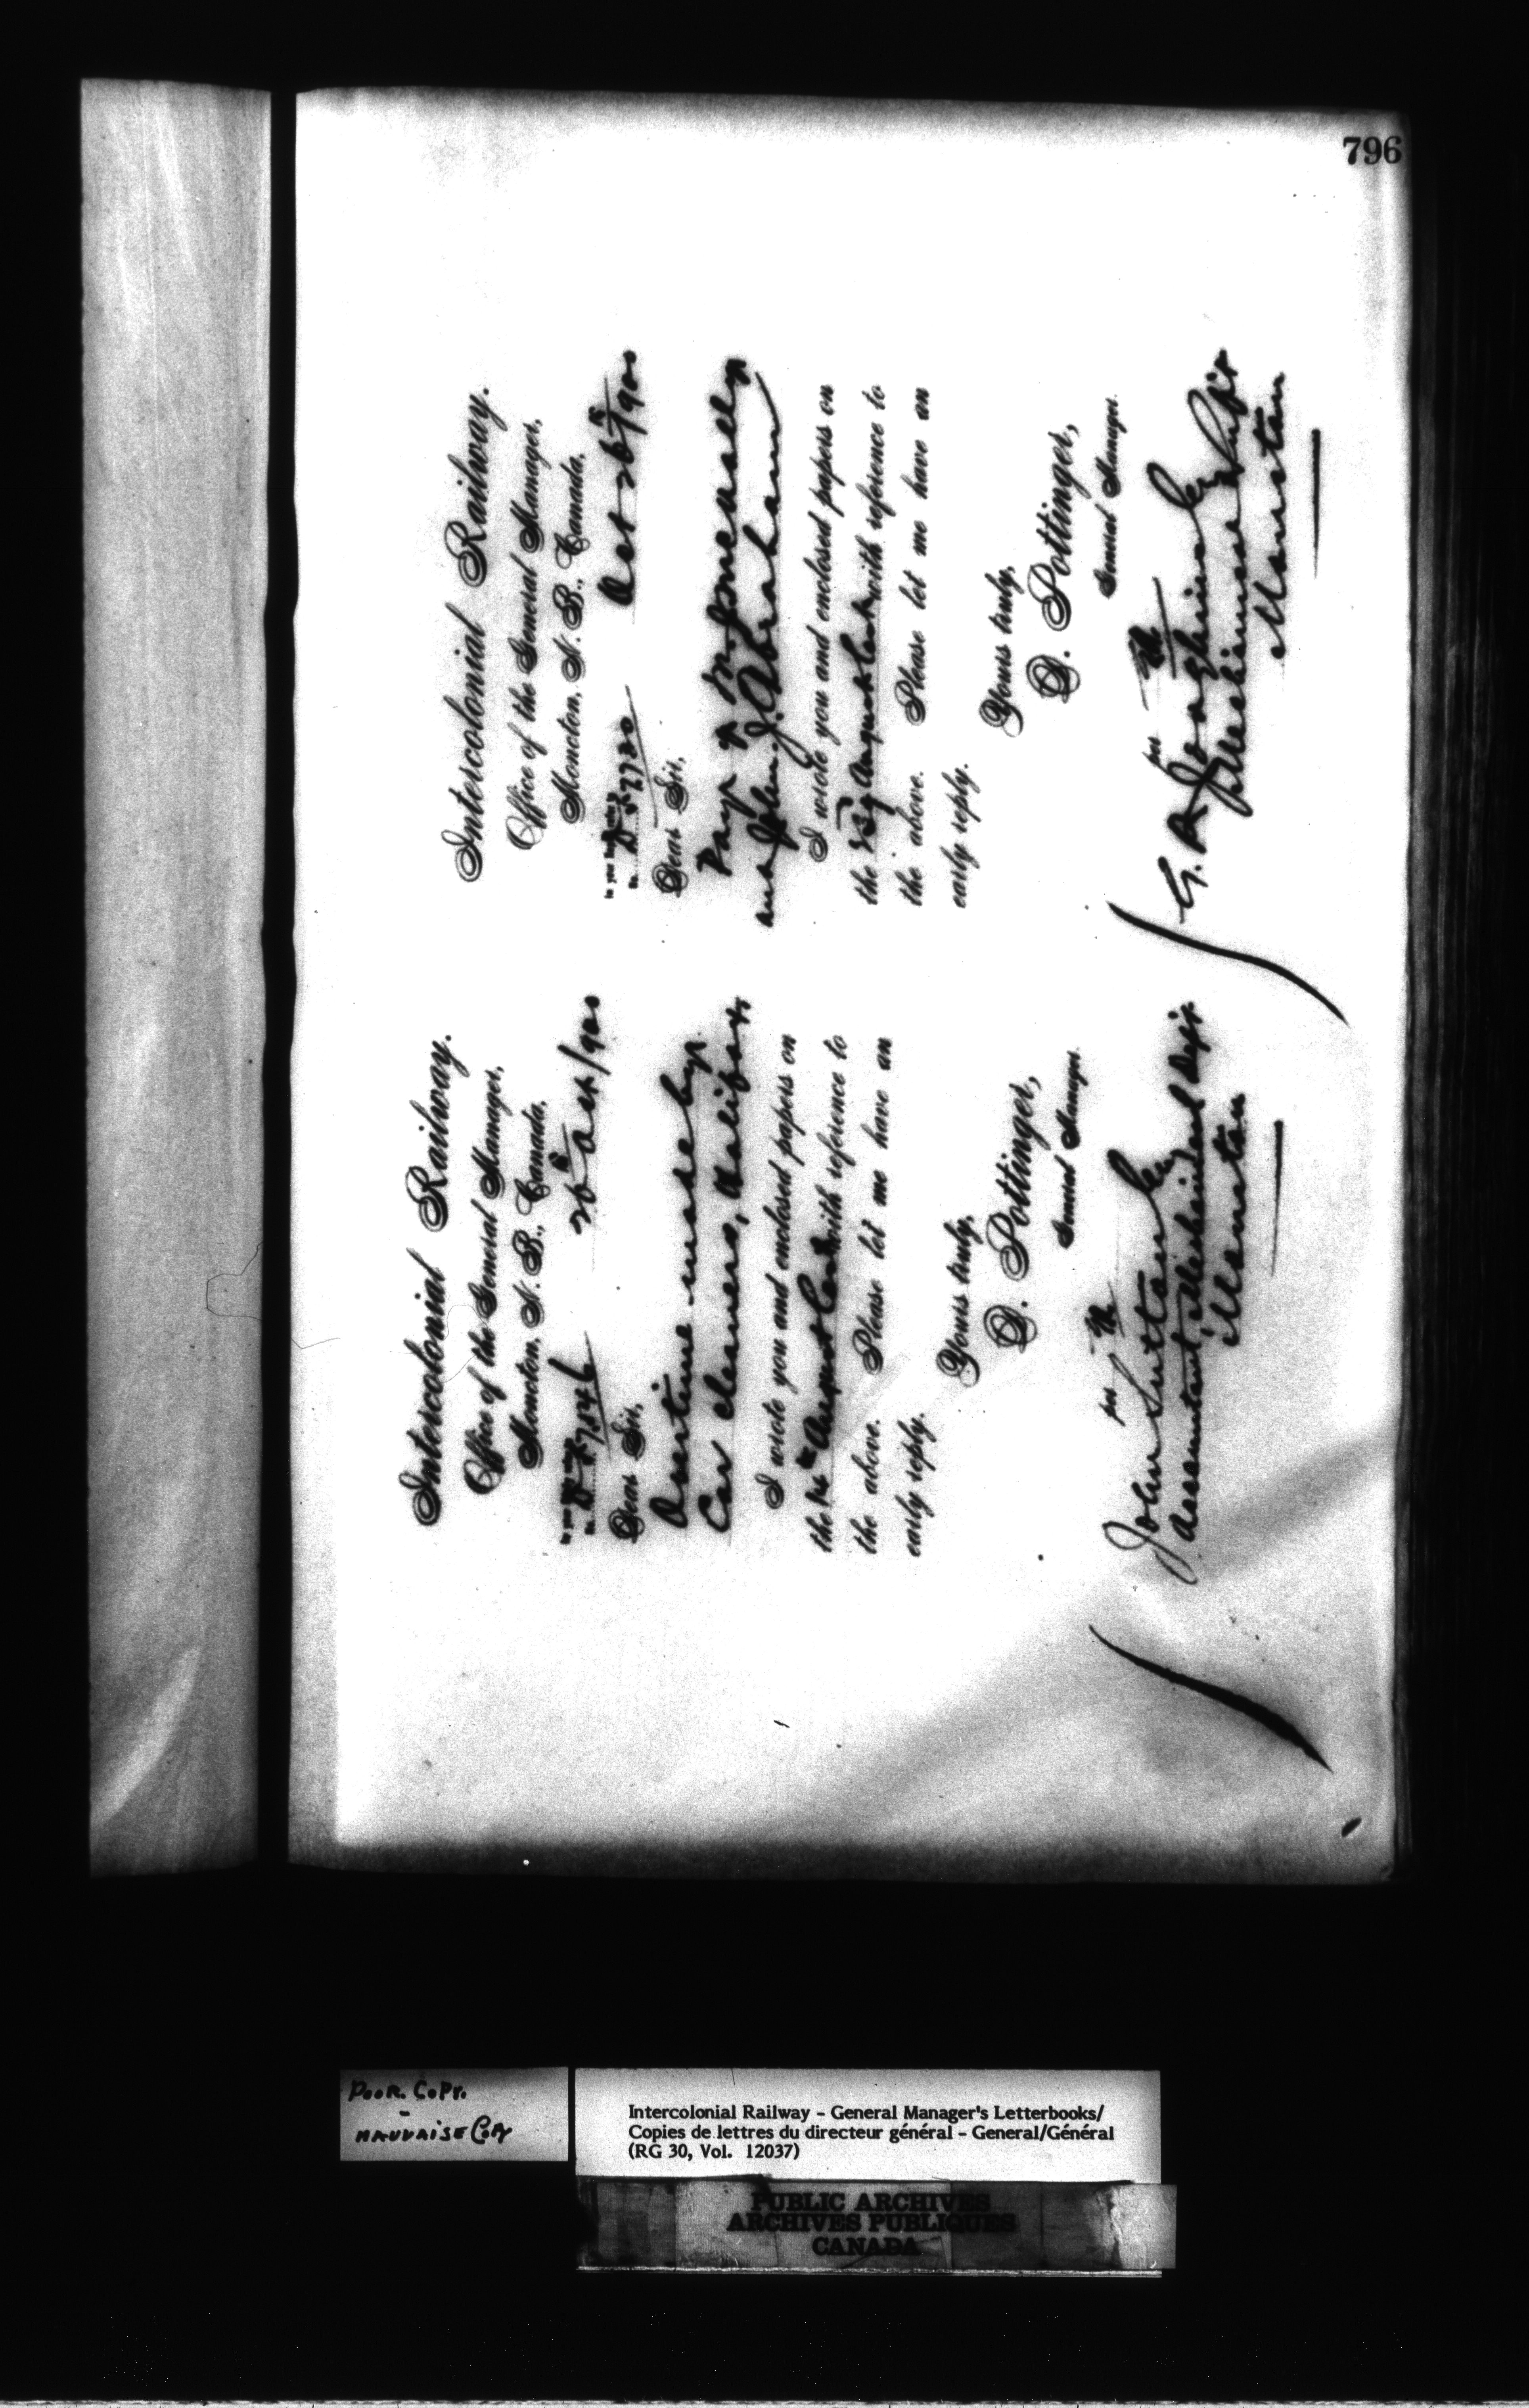 796
Intercolonial Railway.
Office of the General Manager,
Moncton, N. B., Canada,
26th Oct 1900
Dear Sir,
Overtime made by
Car cleaners, Halifax
I wrote you and enclosed papers on
the August last with reference to
the above. Please let me have an
early reply.
Yours truly,
D. Pottinger,
General Manager.
per
John Sutton Esq
Accountant Mechanical Dept
Moncton
Intercolonial Railway.
Office of the General Manager,
Moncton, N. B., Canada,
Oct 26th 1900
Dear Sir,
Pay
and John J. Abraham
I wrote you and enclosed papers on
the August last with reference to
the above. Please let me have an
early reply.
Yours truly,
D. Pottinger,
General Manager.
per
G. R. Joughins Esq
Mechanical Supt
Moncton
POOR. COPY.
-
MAUVAISE COPY
Intercolonial Railway – General Manager's Letterbooks/
Copies de lettres du directeur général – General/Général
(RG 30, Vol. 12037)
PUBLIC ARCHIVES
ARCHIVES PUBLIQUES
CANADA